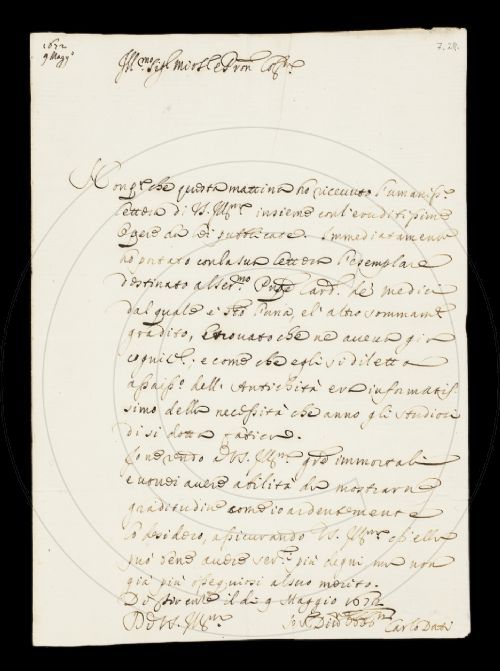 1672
9 Magg.º
7. 28.
Ill.mo Sig.r mio e Pron Col.mo
Non p.a che questa mattina ho ricevuto l'umaniss.a
lettera di VS. Ill.ma insieme con l'eruditissime
opere da lei pubblicate. Immediatamente
ho portato con la sua lettera l'esemplare
destinato al Ser.mo Card. de' Medici
dal quale è l'una, e l'altro sommam.te
gradito, e trovato che ne aveva già
e come che egli si diletta
assaiss.o delle Antichità era informatis-
simo della necessità che anno gli studiosi
di sì dotta fatica.
Io ne rendo a VS. Ill.ma immortali
e vorrei avere abilità da mostrarne
gratitudine com'io ardentemente
lo desidero, assicurando VS. Ill.ma ch'ella
può bene avere ser.i più degni, ma non
già più ossequiosi al suo merito.
Di Firenze il dì 9 Maggio 1672
Di VS. Ill.ma
Carlo Dati